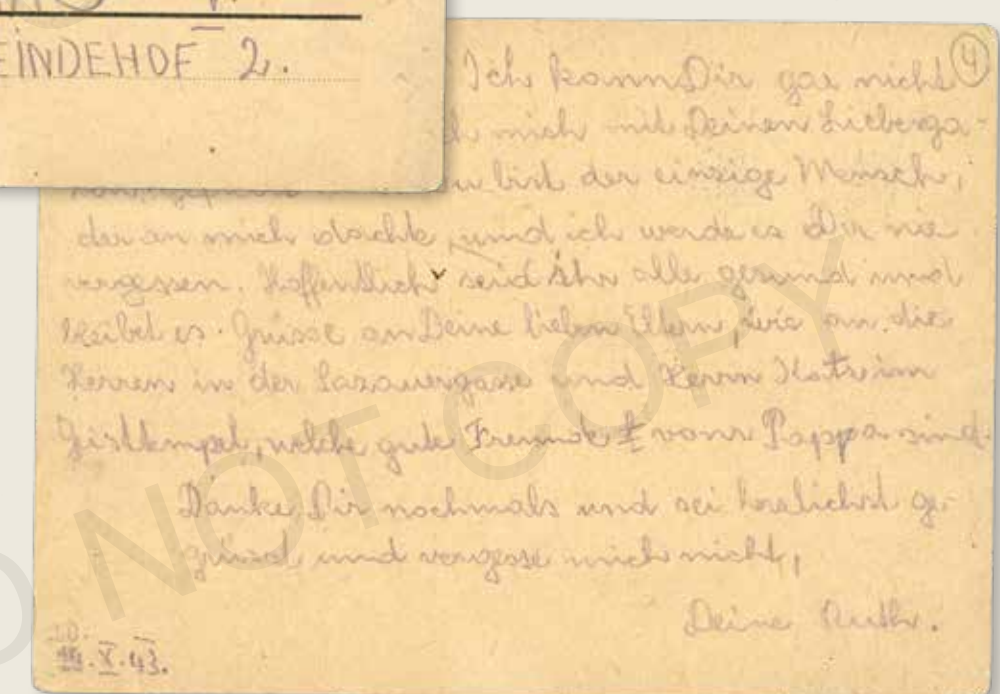 EINDEHOF 2.
4
Ich kann Dir gar nicht
mich mit Deinen Liebesga-
bist der einzige Mensch,
der an mich dachte, und ich werde es Dir nie
vergessen. Hoffentlich seid ihr alle gesund und
bleibet es. Grüsse an Deine lieben Eltern, wie an die
Herren in der Lazauergasse und Herrn
welche gute Freunde vom Pappa sind.
Danke Dir nochmals und sei herzlichst ge-
grüsst und vergesse mich nicht,
Deine Ruth.
X. 43.
NOT COPY